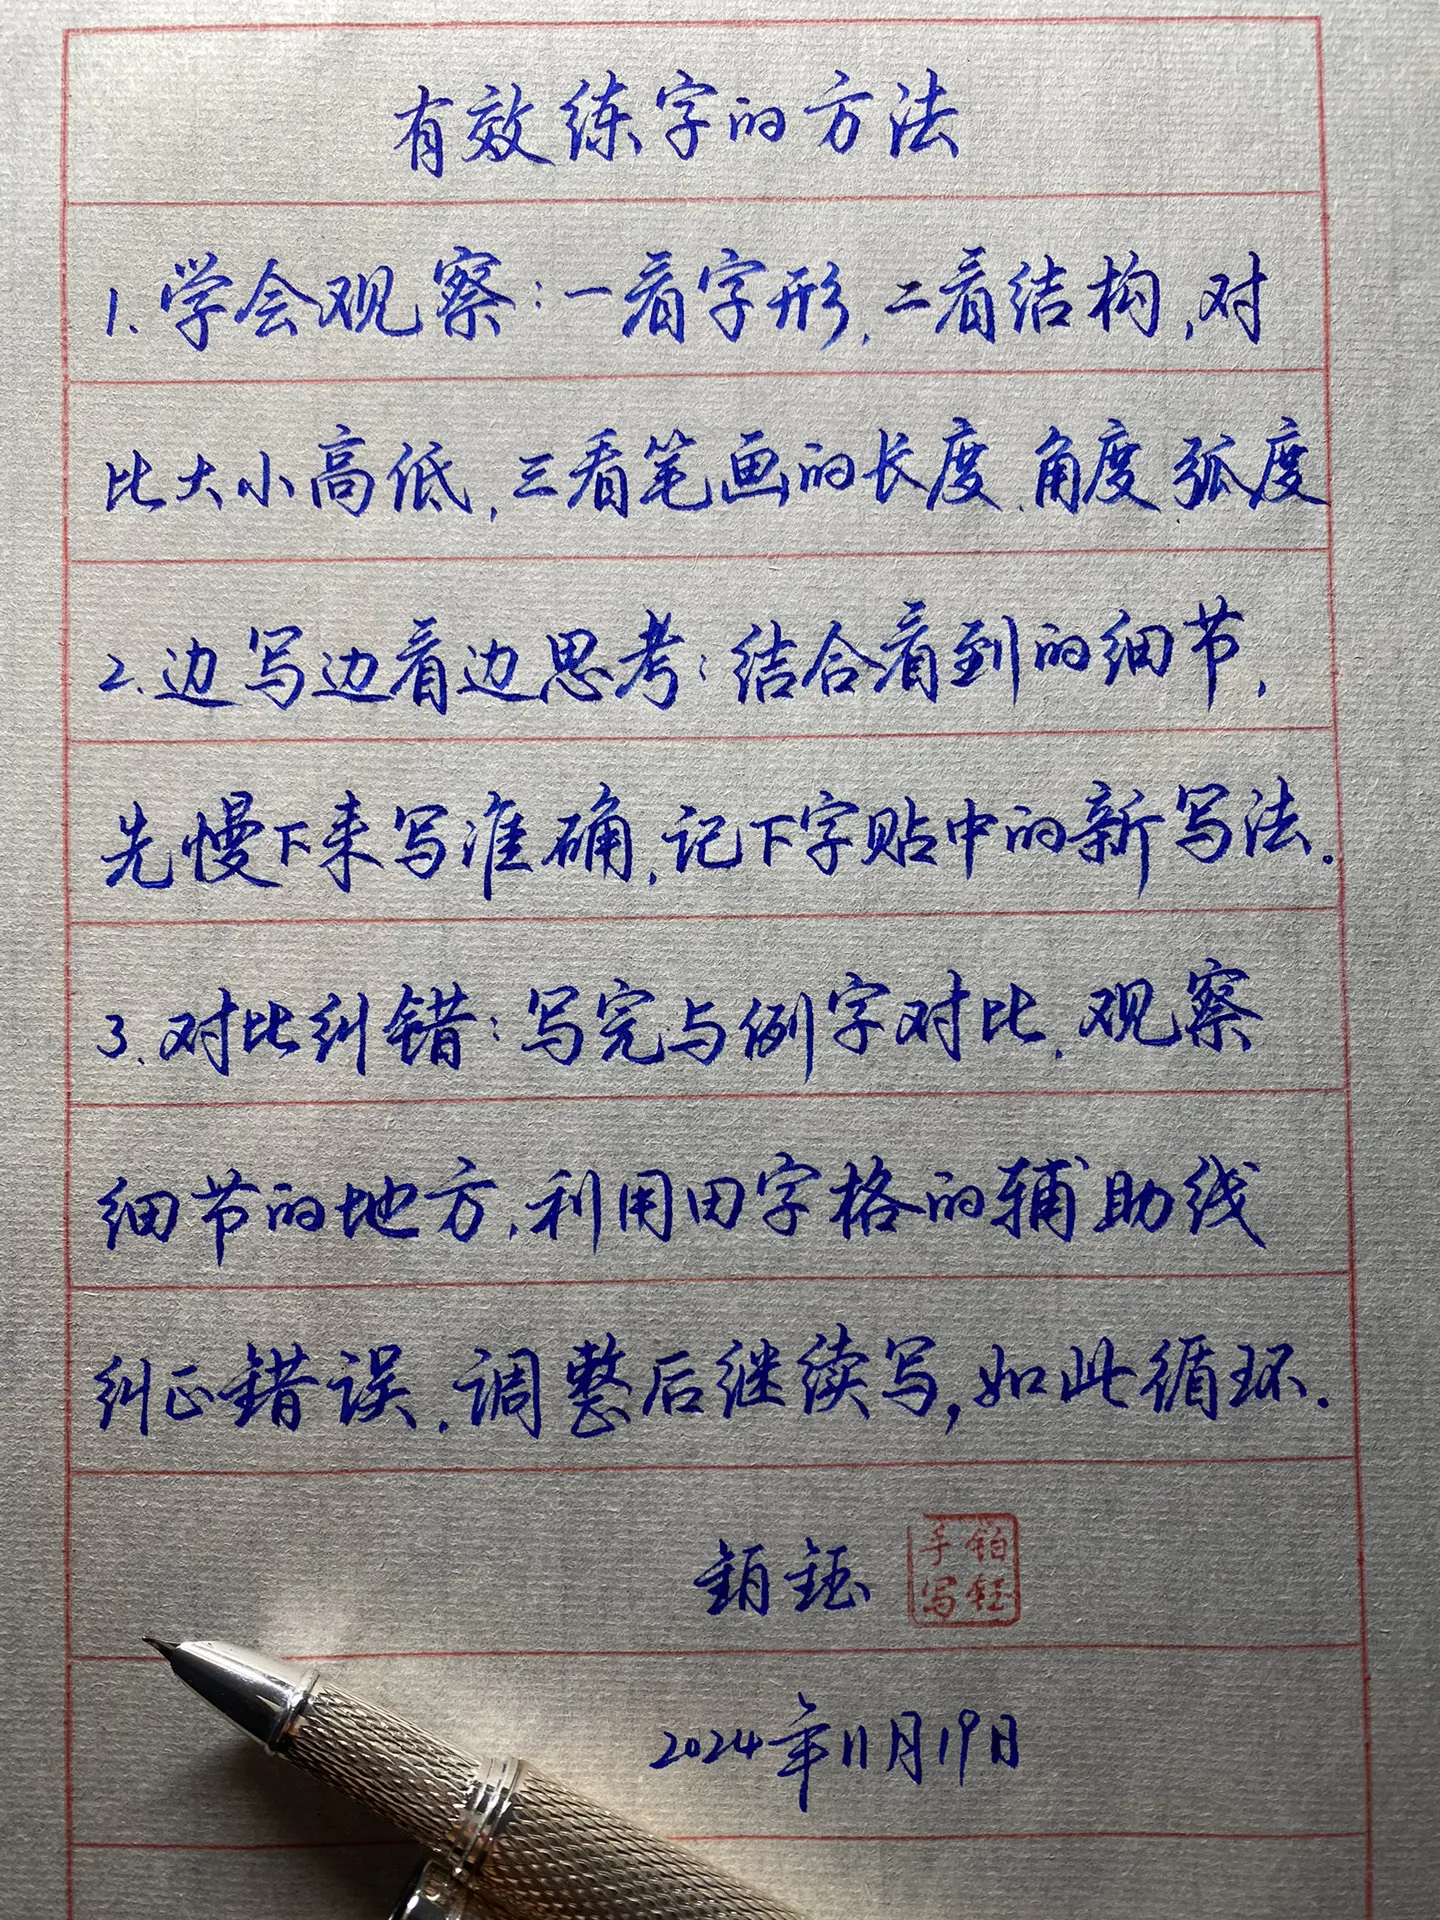 有效练字的方法
1.学会观察:一看字形,二看结构,对
比大小高低,三看笔画的长度.角度.弧度
2.边写边看边思考:结合看到的细节,
先慢下来写准确,记下字贴中的新写法.
3.对比纠错:写完与例字对比.观察
细节的地方,利用田字格的辅助线
纠正错误.调整后继续写,如此循环.
铂钰
铂钰手写
2024年11月19日